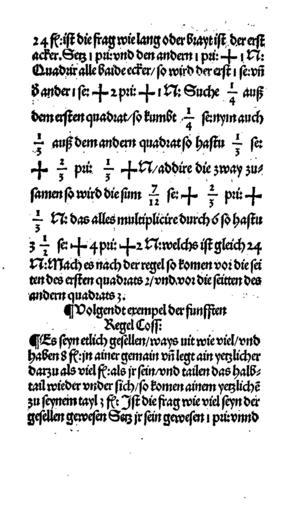 24 fl: ist die frag wie lang oder brayt ist der erst
acker. Setz 1 pri: vnd den andern 1 pri: + 1 N:
Quadrir alle baide ecker/ so wird der erst 1 se: vñ
d̕ ander 1 se: + 2 pri: + 1 N: Suche 1/4 auß
dem ersten quadrat/ so kumbt 1/4 se: nym auch
1/3 auß dem andern quadrat so hastu 1/3 se:
+ 2/3 pri: 1/3 + N/ addire die zway zu-
samen so wird die sum 7/12 se: + 2/3 pri: +
1/3 N: das alles multiplicire durch 6 so hastu
3 1/2 se: + 4 pri: + 2 N: welchs ist gleich 24
N: Mach es nach der regel so komen vor die sei
ten des ersten quadrats 2/ vnd vor die seitten des
andern quadrats 3.
¶Volgendt exempel der funfften
Regel Coss:
¶Es seyn etlich gesellen/ ways nit wie viel/ vnd
haben 8 fl: jn ainer gemain vñ legt ain yetzlicher
darzu als viel fl: als jr sein/ vnd tailen das halb-
tail wieder vnder sich/ so komen ainem yetzlichē
zu seynem tayl 3 fl: Ist die frag wie viel seyn der
gesellen gewesen Setz jr sein gewesen 1 pri: vnnd